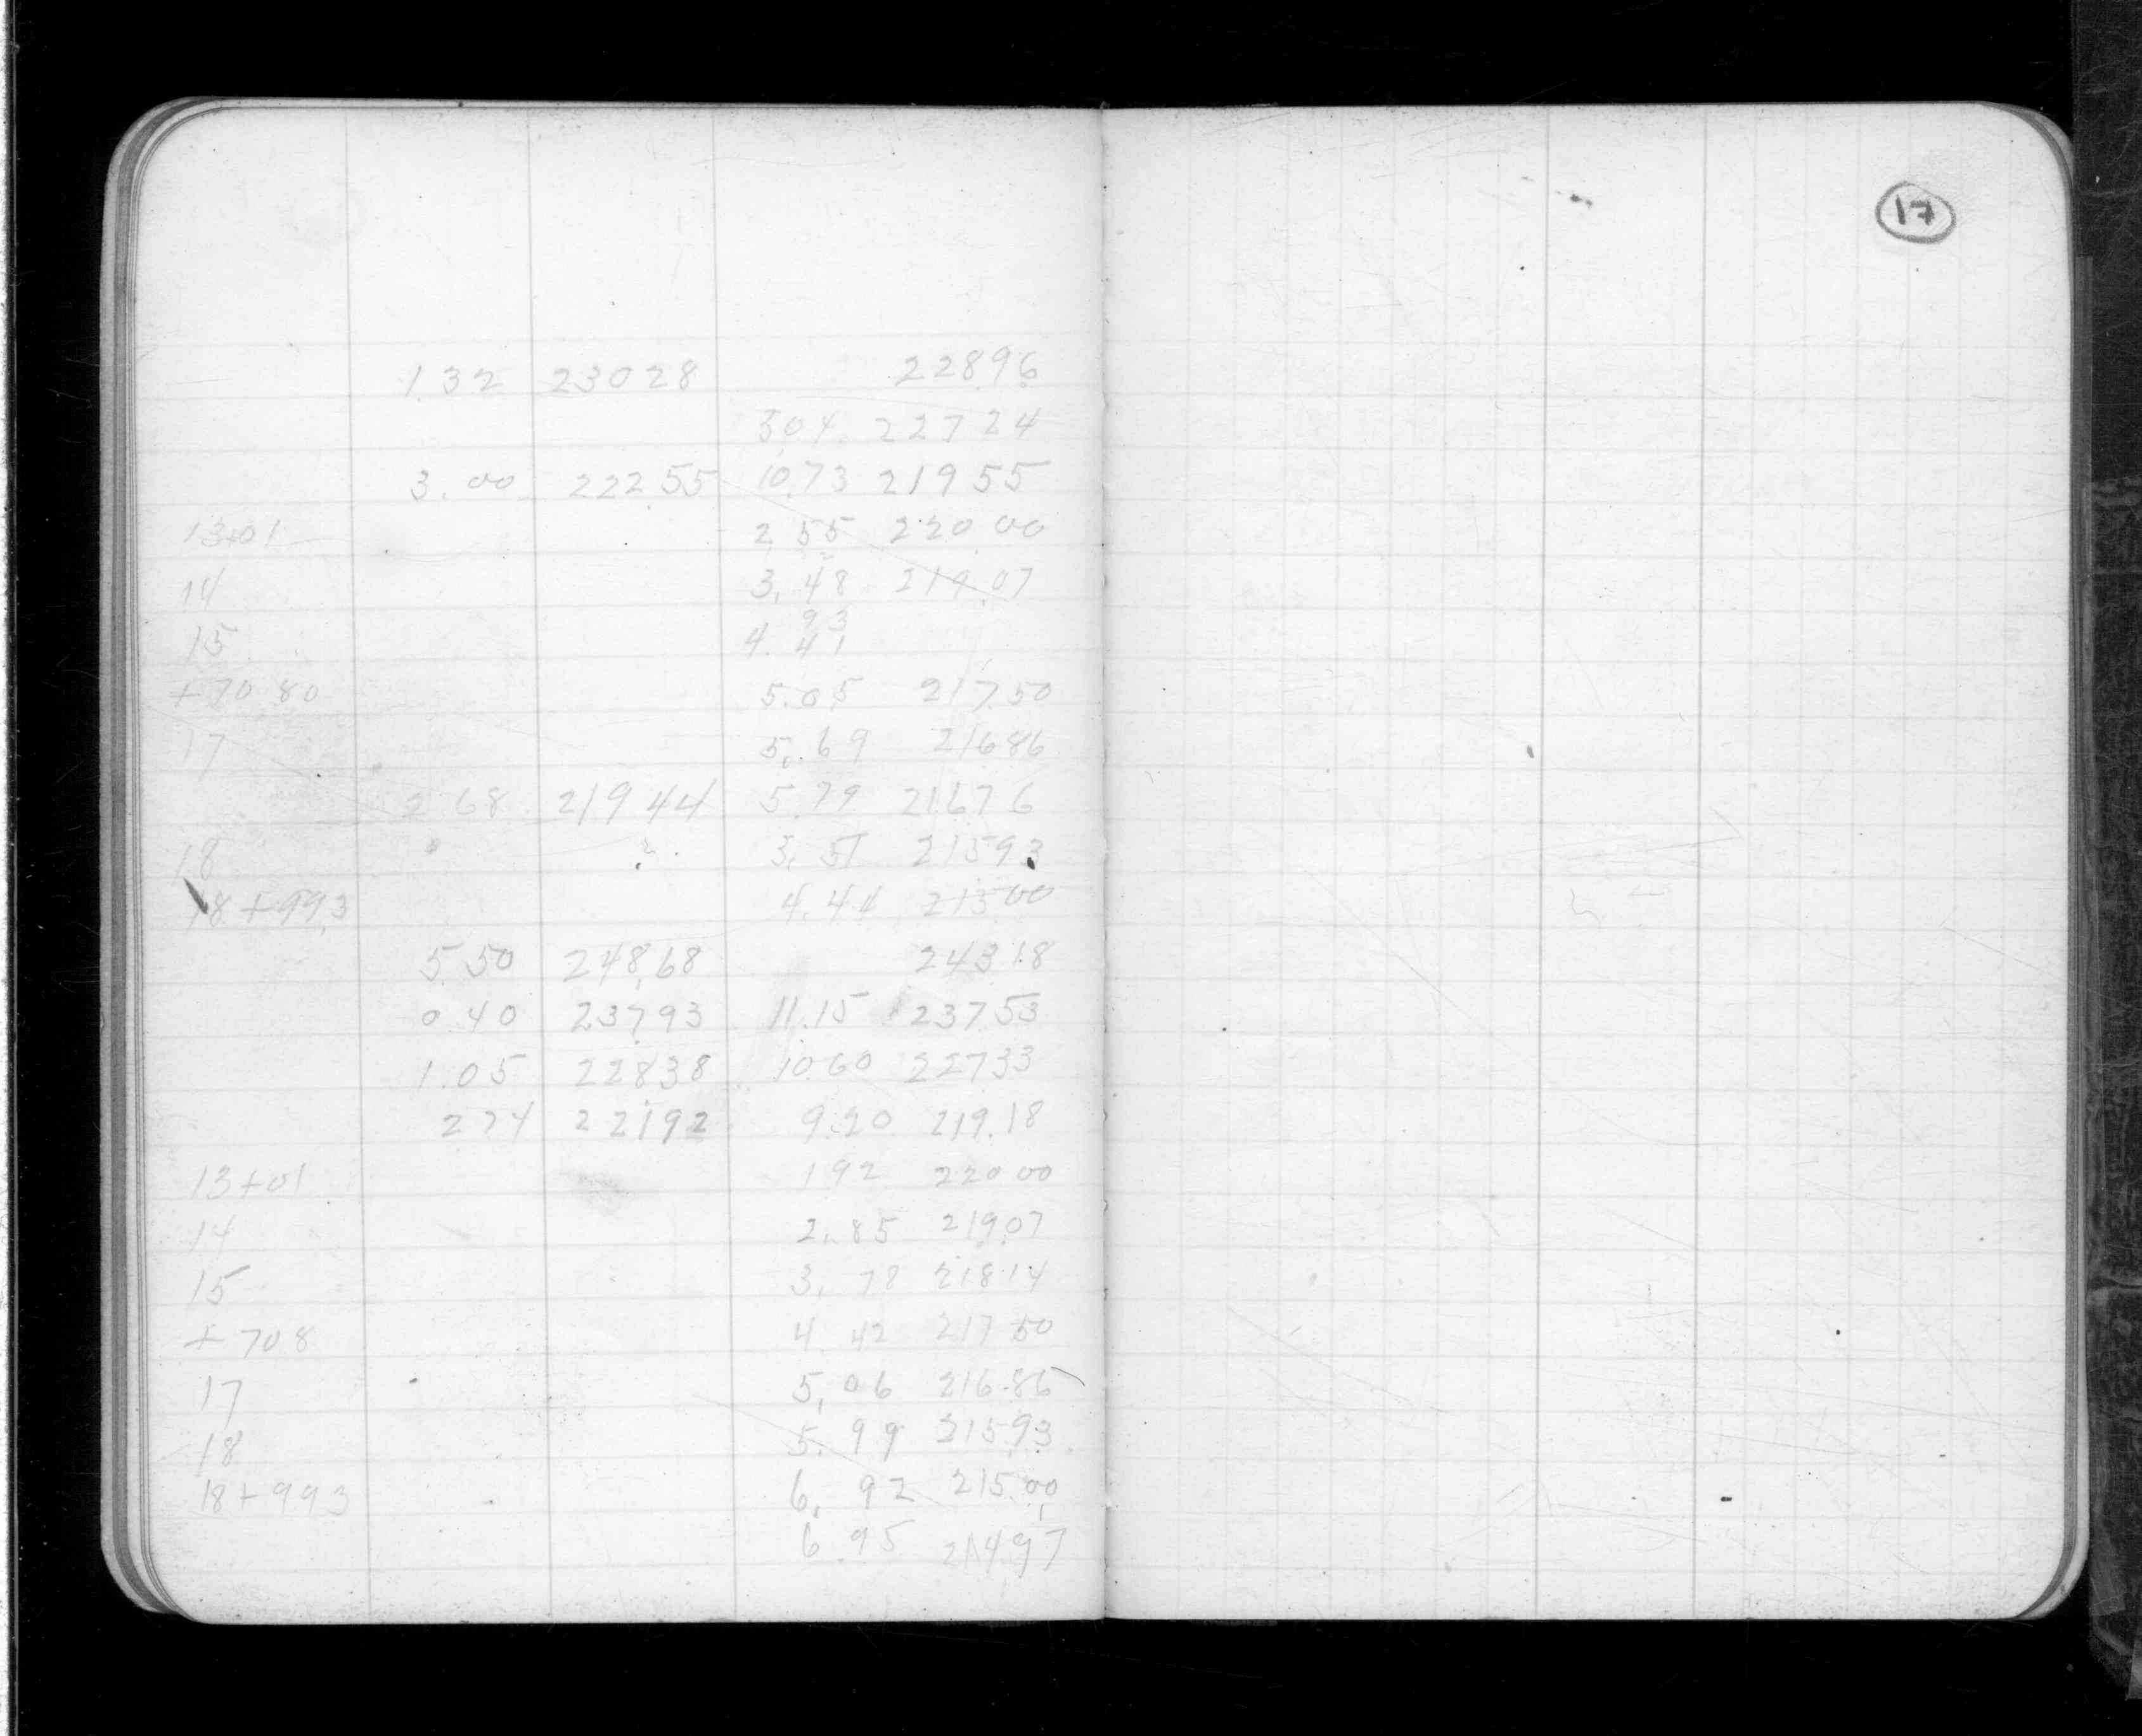 17
1.32 23028 22896
3.04 22724
3.00 22255 10.73 21955
13+01 2.55 220.00
14 3.48 219.07
93
15 4.41
+70 80 5.05 217.50
17 5.69 21686
2 68 219 44 5.79 21676
18 3.51 21593
18+993 4.44 21500
5.50 248.68 243 18
0.40 23793 11.15 23753
1.05 22838 10.60 22733
2 74 22192 9.20 219.18
13+01 1 92 220 00
14 2.85 219.07
15 3.78 218 14
+ 708 4.42 217 50
17 5.06 216.86
18 5.99 21593
18+993 6.92 215.00
6.95 21497